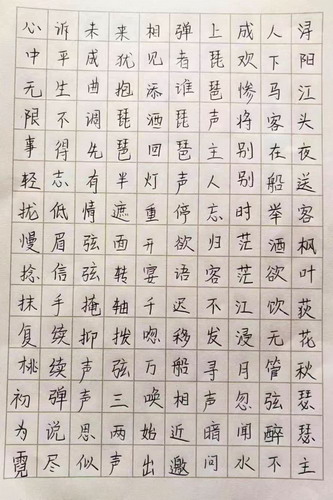 浔阳江头夜送客枫叶荻花秋瑟瑟主
人下马客在船举酒欲饮无管弦醉不
成欢惨将别别时茫茫江浸月忽闻水
上琵琶声主人忘归客不发寻声暗问
弹者谁琵琶声停欲语迟移船相近邀
相见添酒回灯重开宴千唿万唤始出
来犹抱琵琶半遮面转轴拨弦三两声
未成曲调先有情弦弦掩抑声声思似
诉平生不得志低眉信手续续弹说尽
心中无限事轻拢慢捻抹复桃初为霓